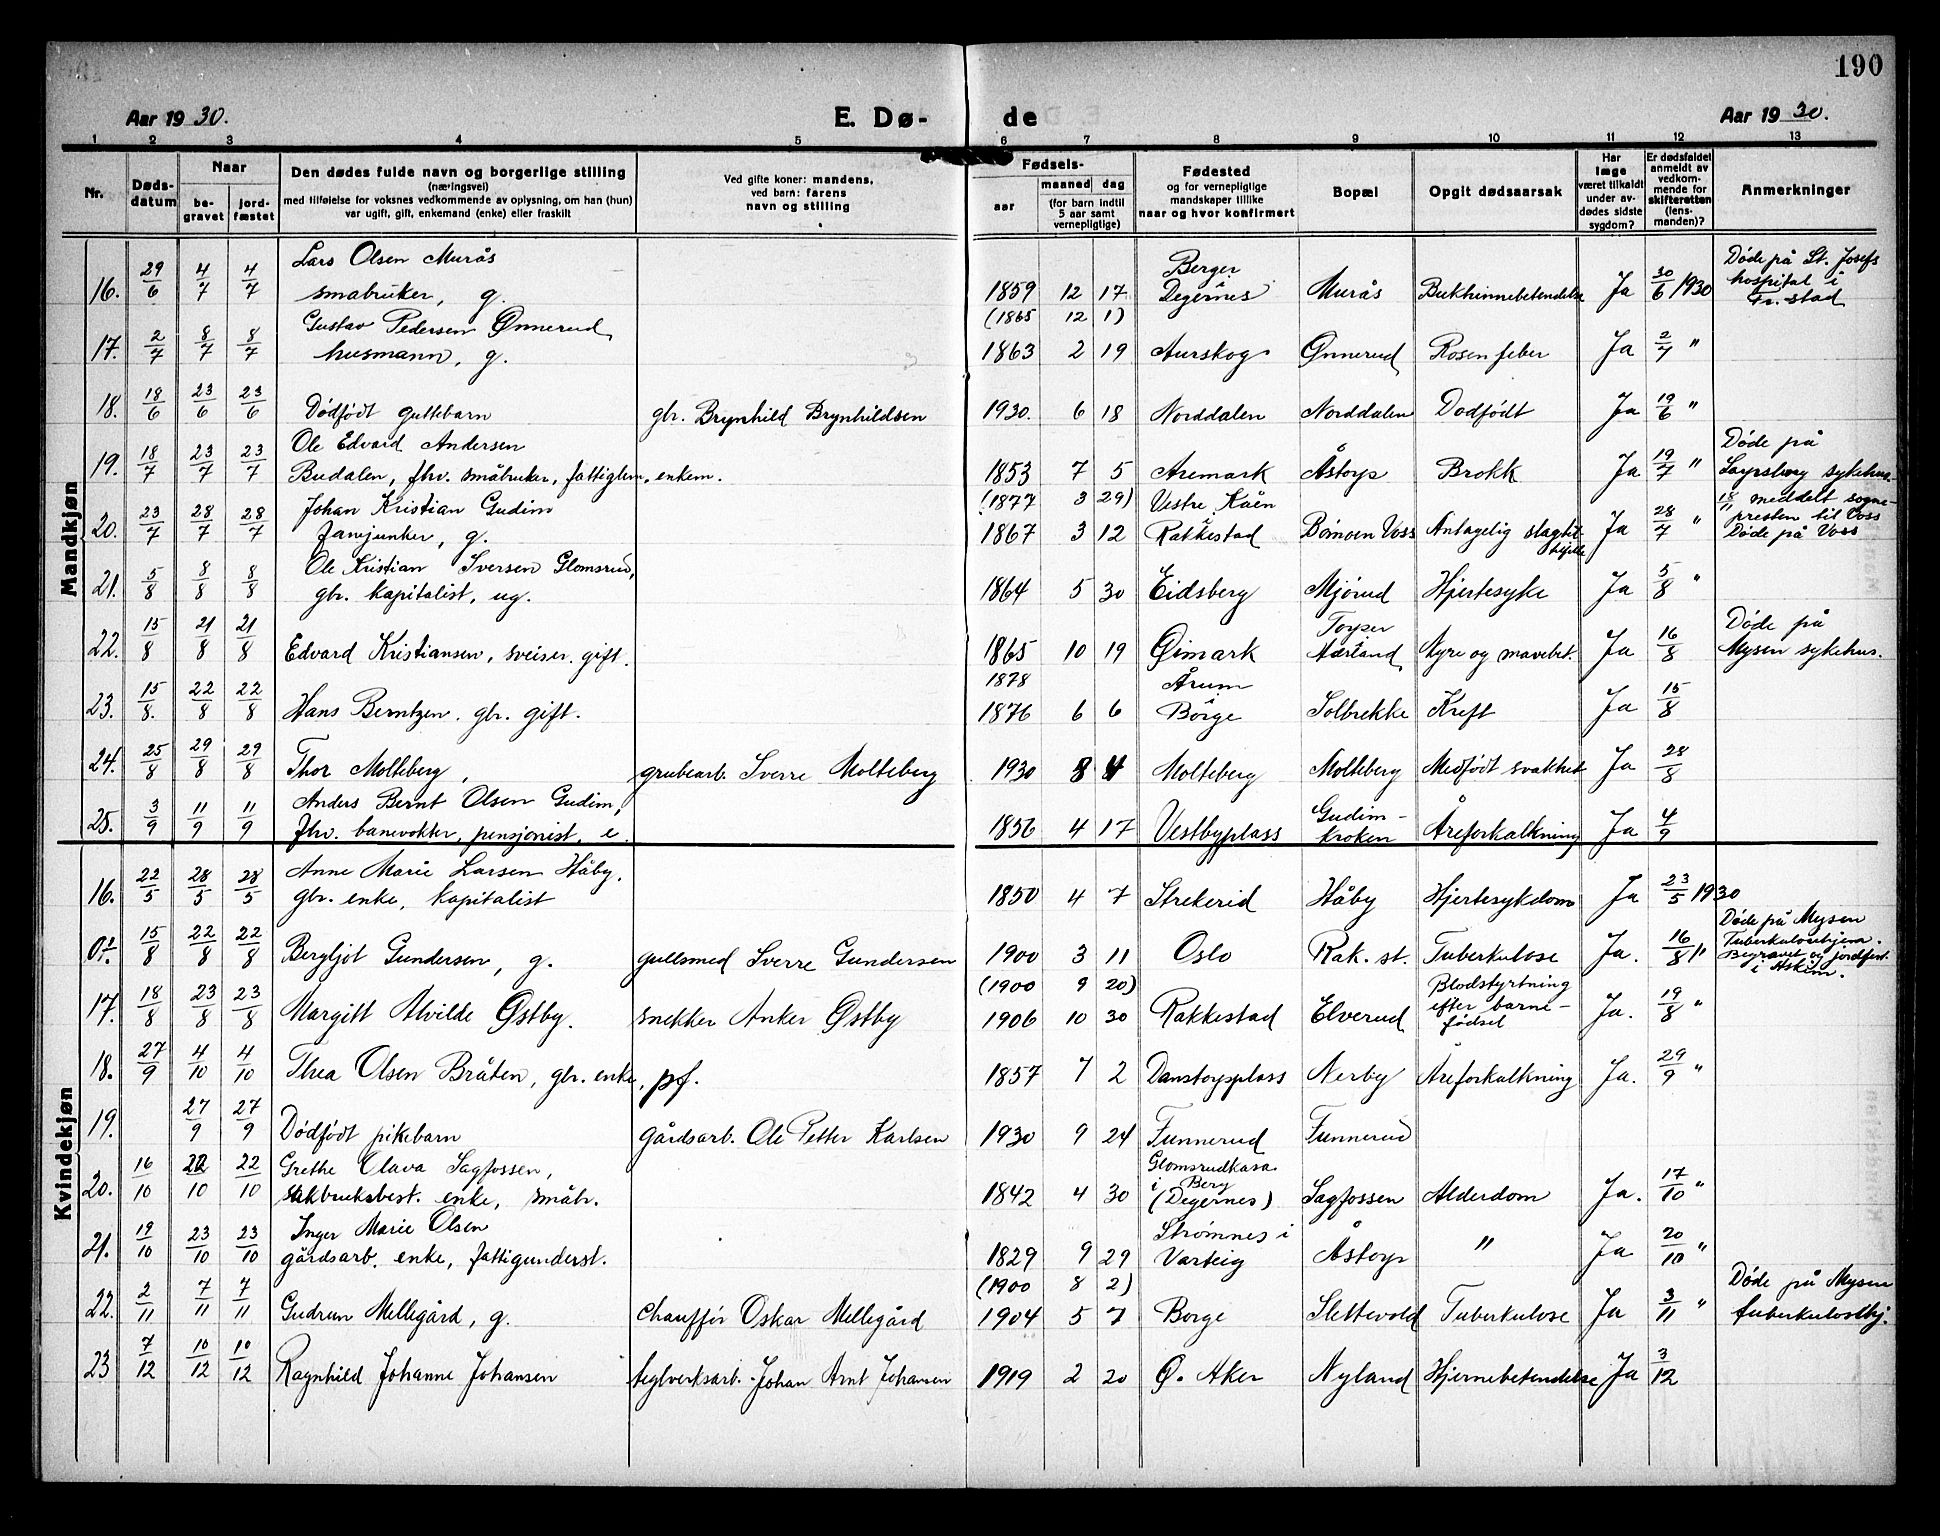 190
Aar 1930. E. Dø- de Aar 1930.
1 2 3 4 5 6 7 8 9 10 11 12 13
Nr. Døds-datum Naar be-gravet jord-fæstet Den dødes fulde navn og borgerlige stilling (næringsvei) med tilføielse for voksnes vedkommende av oplysning, om han (hun) var ugift, gift, enkemand (enke) eller fraskilt Ved gifte koner: mandens, ved barn: farens navn og stilling Fødsels- aar maaned dag (for barn indtil 5 aar samt vernepligtige) Fødested og for vernepligtige mandskaper tillike naar og hvor konfirmert Bopæl Opgit dødsaarsak Har læge været tilkaldt under av-dødes sidste sygdom? Er dødsfaldet anmeldt av vedkom-mende for skifteretten (lens-manden)? Anmerkninger
Mandkjøn
16. 29/6 4/7 4/7 Lars Olsen Murås småbruker, g. 1859 12 17 Berger Degernes Murås Bukhinnebetendelse Ja 30/6 1930 Døde på St. Josefs hospital i Fr.stad
17. 2/7 8/7 8/7 Gustav Pedersen Ønnerud, husmann, g. (1865 12 1) 1863 2 19 Aurskog Ønnerud Rosenfeber Ja 2/7 "
18. 18/6 23/6 23/6 Dødfødt guttebarn gbr. Brynhild Brynhildsen 1930. 6 18 Norddalen Norddalen Dødfødt Ja 19/6 "
19. 18/7 23/7 23/7 Ole Edvard Andersen Budalen, fhv. småbruker, fattiglem, enkem. 1853 7 5 Aremark Åstorp Brokk Ja 19/7 " Døde på sykehus.
20. 23/7 28/7 28/7 Johan Kristian Gudim g. (1877 3 29) 1867 3 12 Vestre Kåen Rakkestad Bømoen Voss Antagelig slagtilfelle Ja 28/7 " meddelt sogne-presten til Voss Døde på Voss
21. 5/8 8/8 8/8 Ole Kristian Iversen Glomsrud, gbr. kapitalist, ug. 1864 5 30 Eidsberg Mjørud Hjertesyke Ja 5/8 "
22. 15/8 21/8 21/8 Edvard Kristiansen, sveiser. gift. 1865 10 19 Øimark Torper Hærland Nyre og mavebet. Ja 16/8 Døde på Mysen sykehus.
23. 15/8. 22/8 22/8 Hans Berntzen. gbr. gift. 1878 1876 6 6 Årum Borge Solbrekke Kreft Ja 15/8
24. 25/8 29/8 29/8 Thor Molteberg, grubearb. Sverre Molteberg 1930 8 4 Molteberg Molteberg Medfødt svakhet Ja 28/8
25. 3/9 11/9 11/9 Anders Bernt Olsen Gudim, fhv. banevokter, pensjonist, e. 1856 4 17 Vestbyplass Gudim-kroken Åreforkalkning Ja 4/9
Kvindekjøn
16. 22/5 28/5 28/5 Anne Marie Larsen Håby, gbr. enke, kapitalist 1850 4 7 Strekerid Håby Hjertesykdom Ja 23/5 1930
15/8 22/8 22/8 Bergljot Gundersen, g. gullsmed Sverre Gundersen 1900 3 11 Oslo Rak. st. Tuberkulose Ja. 16/8 " Døde på Mysen Tuberkulosehjem. Begravet og jordfest. i Askim.
17. 18/8 23/8 23/8 Margitt Alvilde Østby. snekker Anker Østby (1900 9 20) 1906 10 30 Rakkestad Elverud Blodstyrtning efter barne-fødsel Ja. 19/8 "
18. 27/9 4/10 4/10 Thea Olsen Bråten, gbr. enke, pf. 1857 7 2 Danstorpplass Nerby Åreforkalkning Ja. 29/9 "
19. 27/9 27/9 Dødfødt pikebarn gårdsarb. Ole Petter Karlsen 1930 9 24 Funnerud Funnerud
20. 16/10 22/10 22/10 Grethe Olava Sagfossen, sakbruksbest. enke, småbr. 1842 4 30 Glomsrudkasa i Berg (Degernes) Sagfossen Alderdom Ja. 17/10 "
21. 19/10 23/10 23/10 Inger Marie Olsen gårdsarb. enke, fattigunderst. 1829 9 29 Strømnes i Varteig Åstorp " Ja 20/10 "
22. 2/11 7/11 7/11 Gudrun Mellegård, g. chauffør Oskar Mellegård (1900 8 2) 1904 5 7 Borge Slettevold Tuberkulose Ja 3/11 " Døde på Mysen tuberkulosehj.
23 7/12 10/12 10/12 Ragnhild Johanne Johansen teglverksarb. Johan Arnt Johansen 1919 2 20 Ø. Aker Nyland Hjernebetendelse Ja 3/12